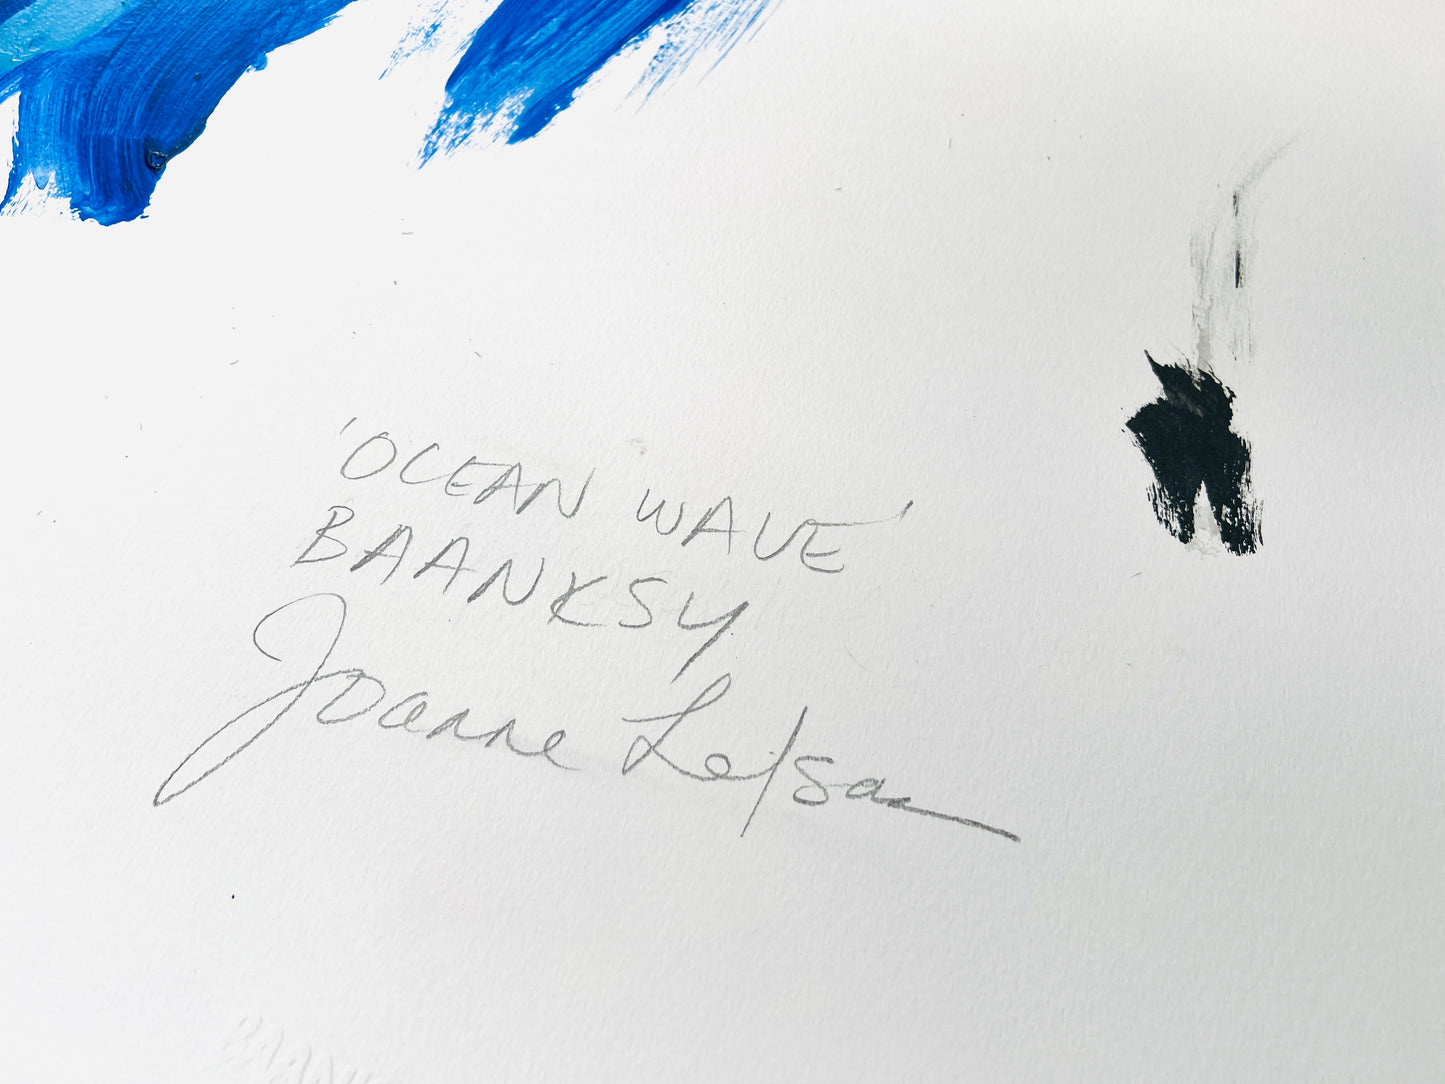 'OCEAN WAVE'
BAANKSY
Joanne